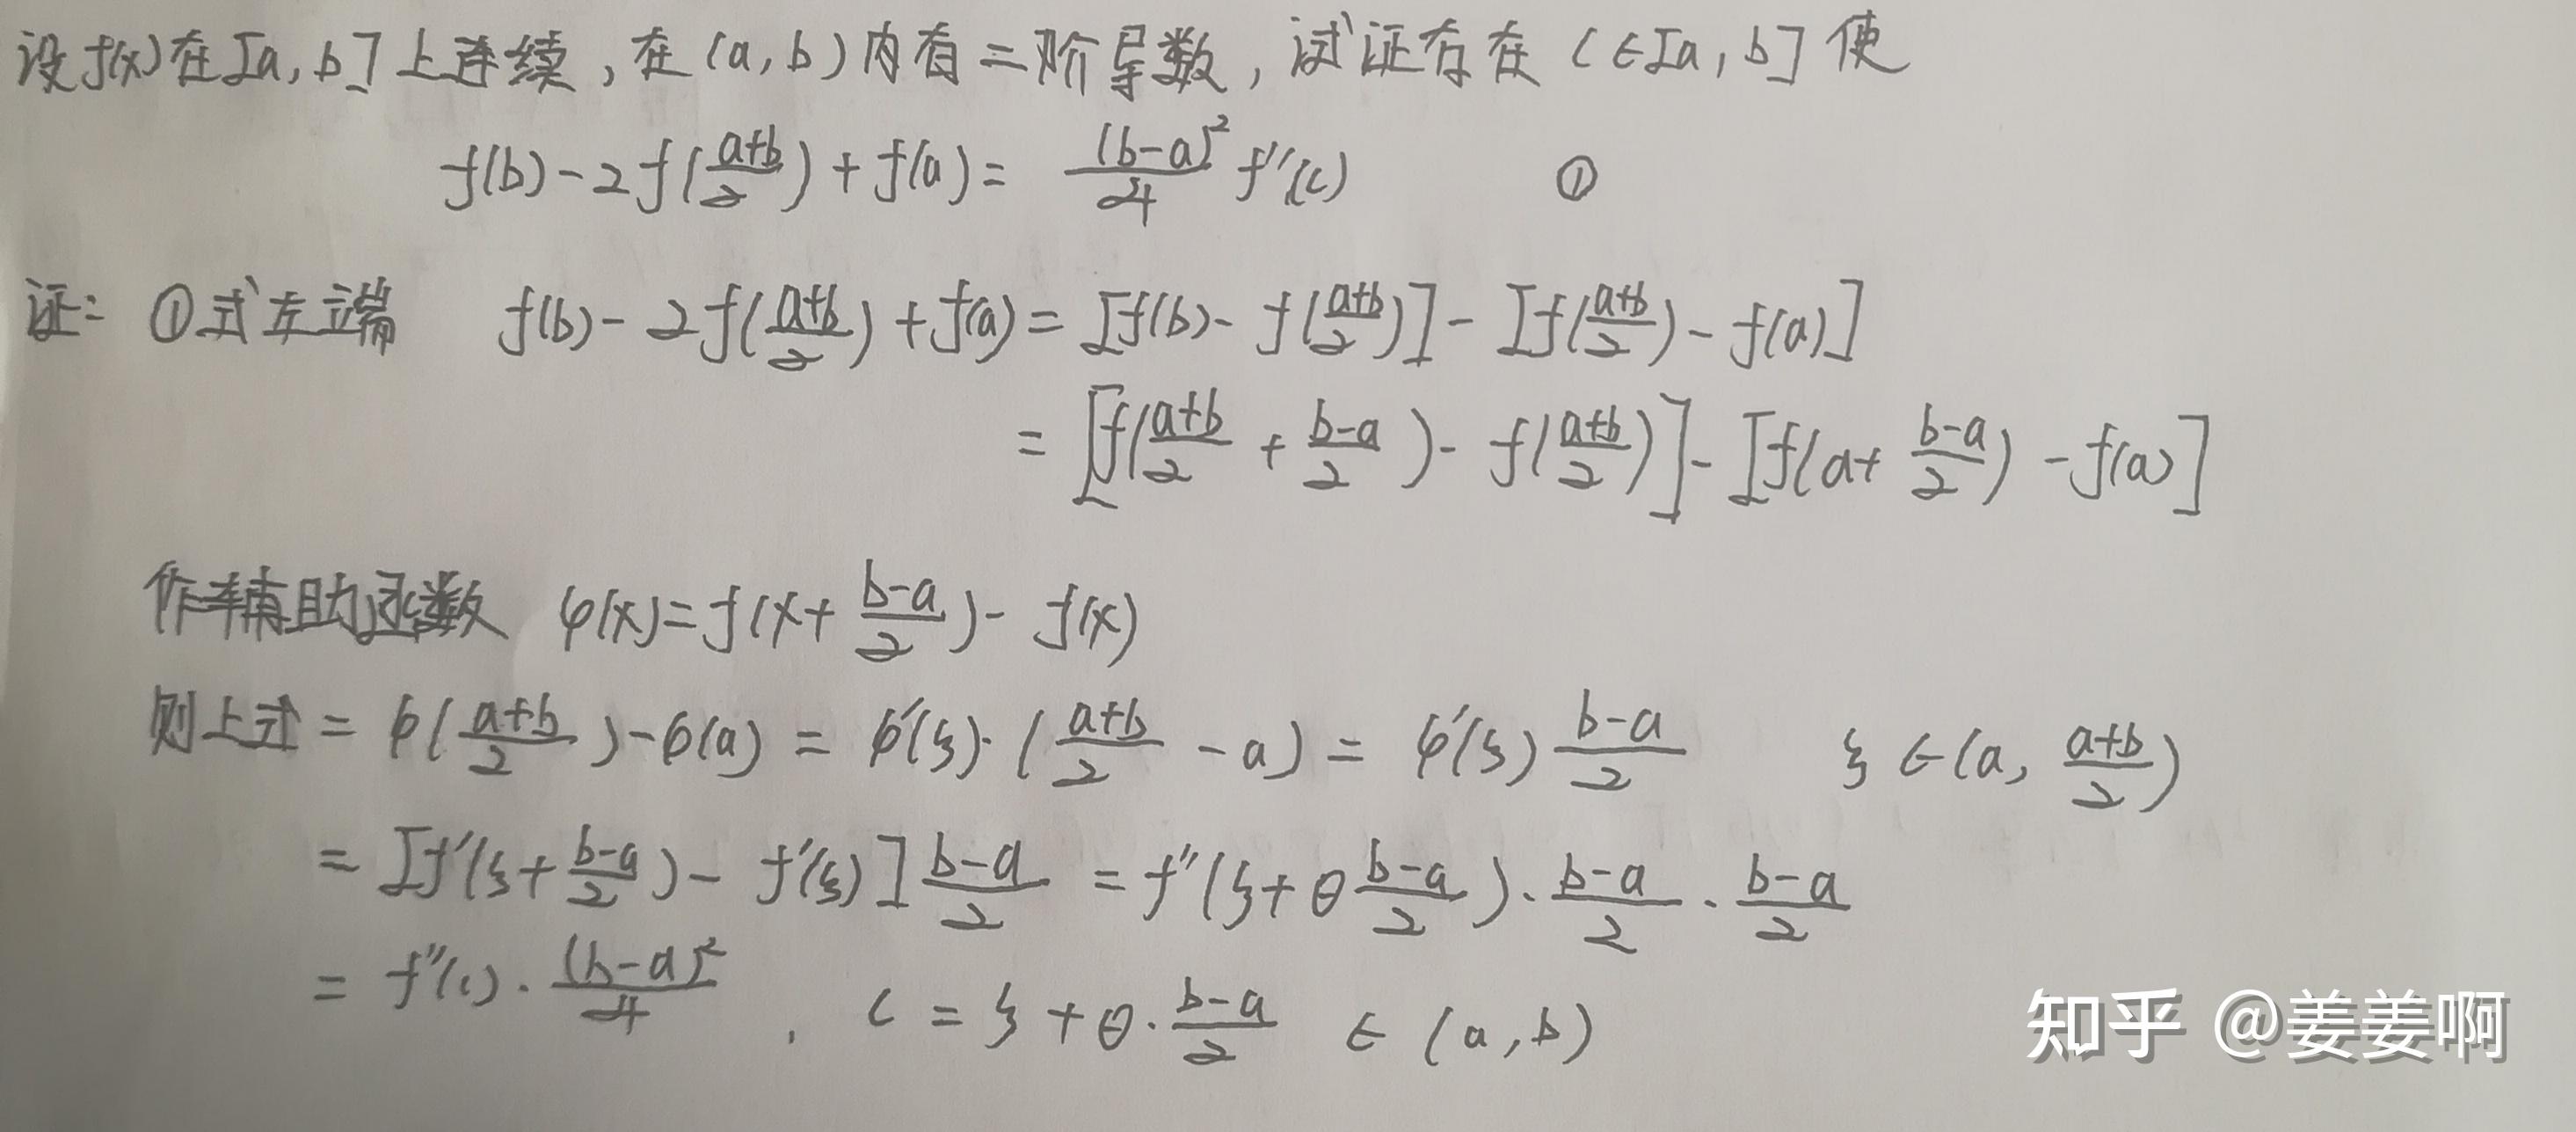 设f(x)在[a,b]上连续,在(a,b)内有二阶导数,试证存在c∈[a,b]使
f(b)-2f(\frac{a+b}{2})+f(a)=\frac{(b-a)^2}{4}f''(c) ①
证: ①式左端 f(b)-2f(\frac{a+b}{2})+f(a)=[f(b)-f(\frac{a+b}{2})]-[f(\frac{a+b}{2})-f(a)]
=[f(\frac{a+b}{2}+\frac{b-a}{2})-f(\frac{a+b}{2})]-[f(a+\frac{b-a}{2})-f(a)]
作辅助函数 φ(x)=f(x+\frac{b-a}{2})-f(x)
则上式=φ(\frac{a+b}{2})-φ(a)=φ'(ξ)·(\frac{a+b}{2}-a)=φ'(ξ)\frac{b-a}{2} ξ∈(a,\frac{a+b}{2})
=[f'(ξ+\frac{b-a}{2})-f'(ξ)]\frac{b-a}{2}=f''(ξ+θ\frac{b-a}{2})·\frac{b-a}{2}·\frac{b-a}{2}
=f''(c)·\frac{(b-a)^2}{4}, c=ξ+θ·\frac{b-a}{2}∈(a,b)
知乎 @姜姜啊